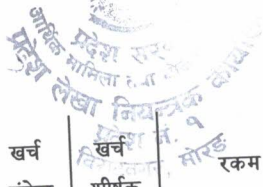 प्रदेश सरकार
आर्थिक मामिला तथा
प्रदेश लेखा नियन्त्रक कार्यालय
प्रदेश नं. १
विराटनगर, मोरङ
खर्च खर्च रकम
संकेत शीर्षक